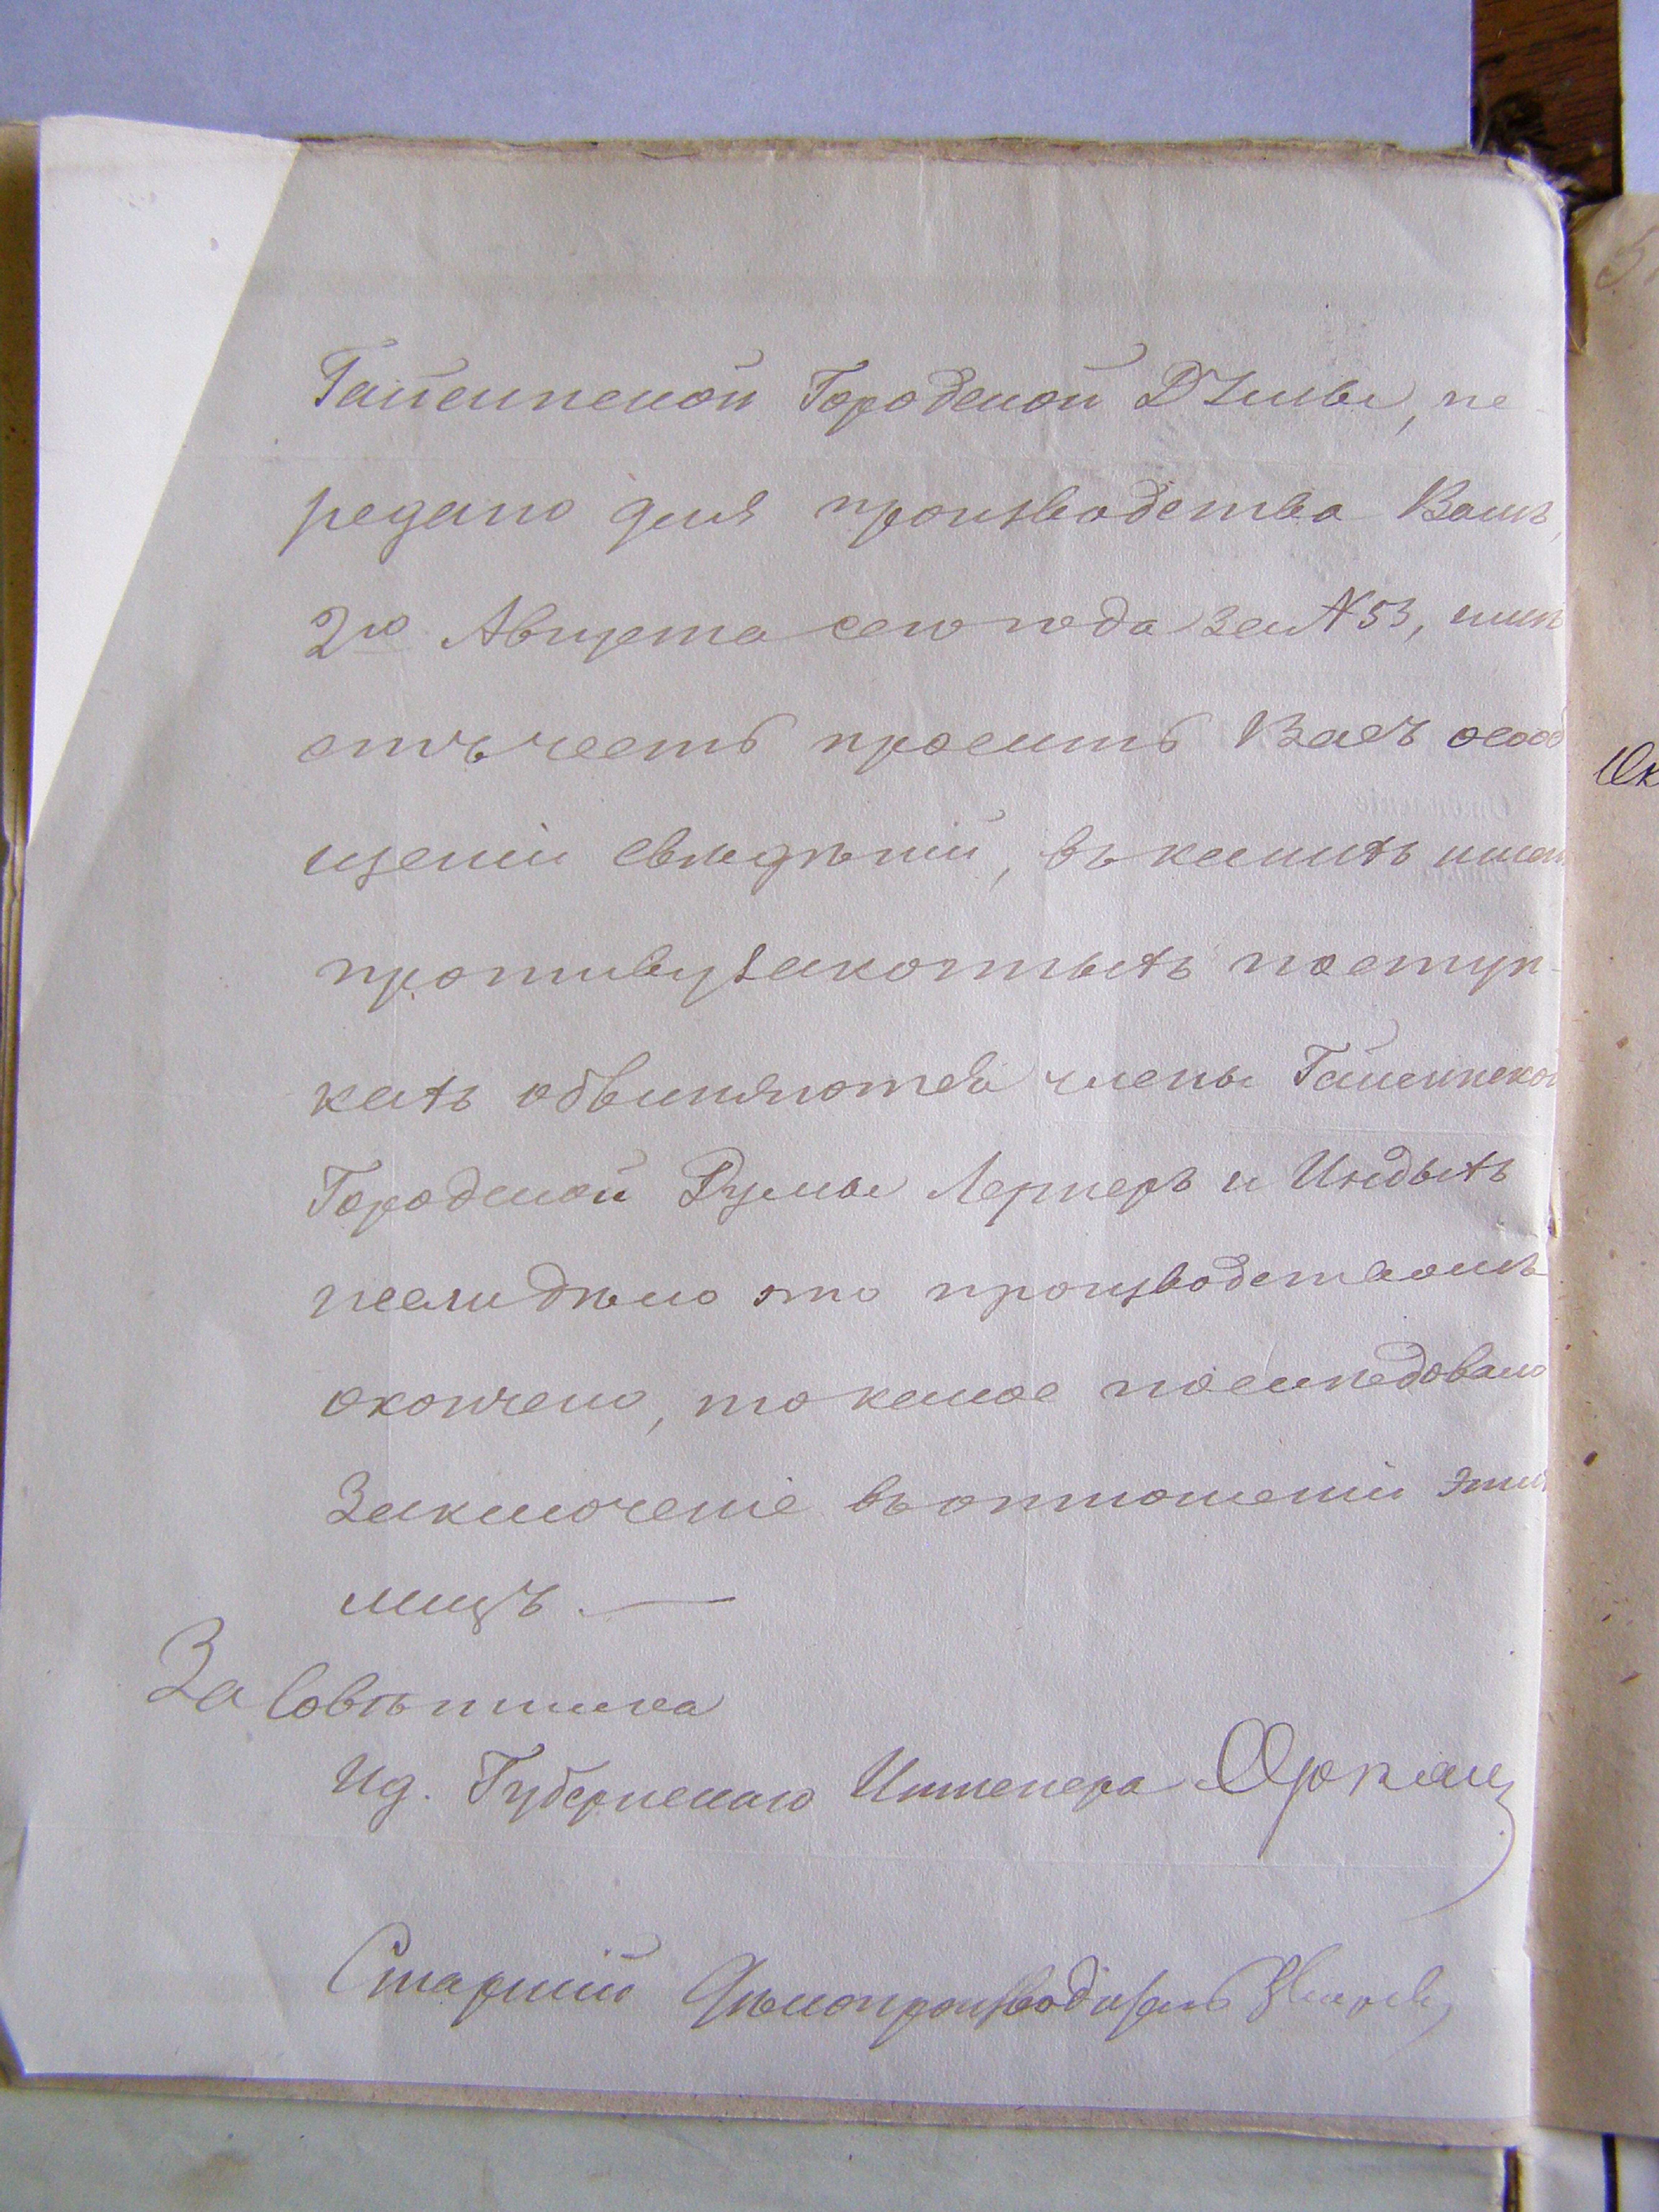 Гайсинской Городской Думы, пе-
редано для производства Вамъ,
2го Августа сего года за № 53, имѣ
етъ честь просить Васъ о сооб
щеніи свѣдѣній, въ какихъ имен
противузаконныхъ поступ-
кахъ обвиняются члены Гайсинской
Городской Думы Лернеръ и Индыхъ
и если дѣло это производствомъ
окончено, то какое послѣдовало
Заключеніе въ отношеніи этихъ
лицъ. —
За Совѣтника
Ид. Губернскаго Инженера
Старшій Дѣлопроизводитель